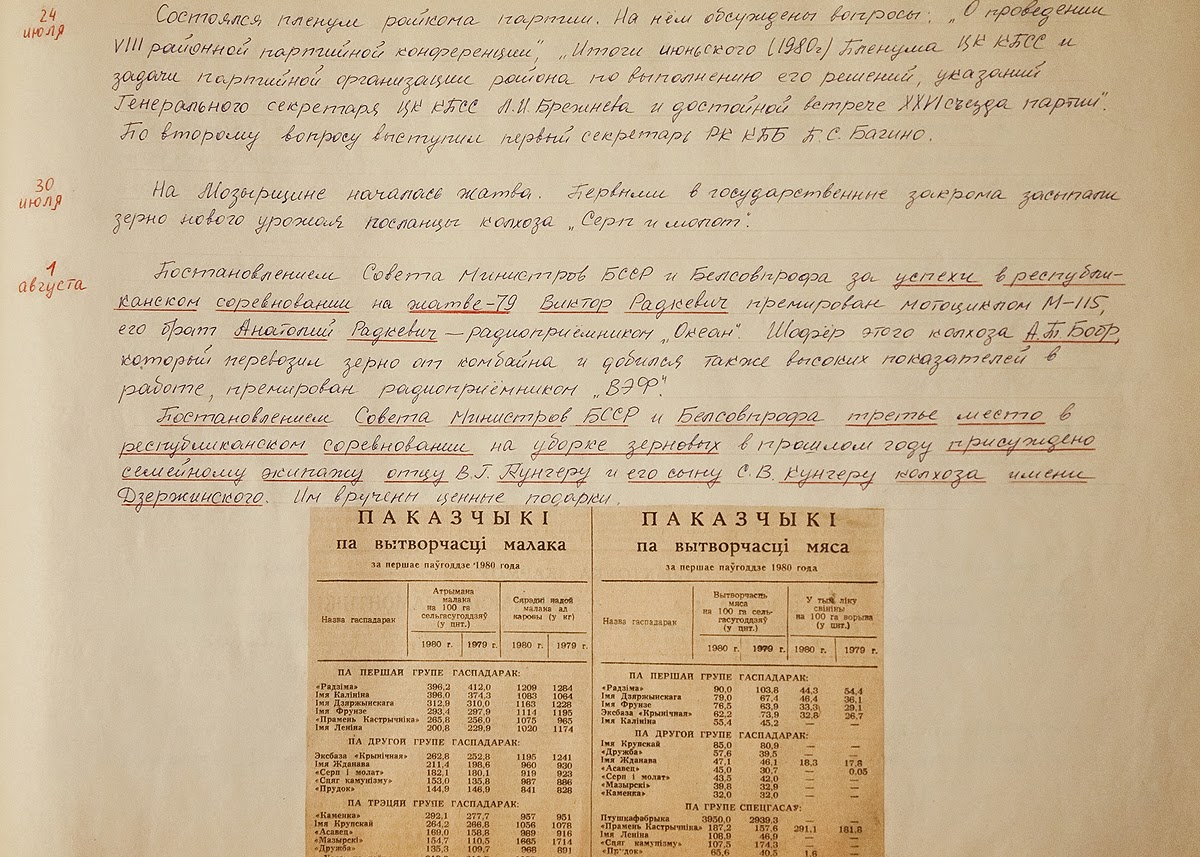 24 июля
Состоялся пленум райкома партии. На нём обсуждены вопросы: „О проведении
VIII районной партийной конференции", „Итоги июньского (1980г) Пленума ЦК КПСС и
задачи партийной организации района по выполнению его решений, указаний
Генерального секретаря ЦК КПСС Л.И. Брежнева и достойной встрече XXVI съезда партии".
По второму вопросу выступил первый секретарь РК КПБ П.С. Багино.
30 июля
На Мозырщине началась жатва. Первыми в государственные закрома засыпали
зерно нового урожая посланцы колхоза „Серп и молот".
1 августа
Постановлением Совета Министров БССР и Белсовпрофа за успехи в республи-
канском соревновании на жатве-79 Виктор Радкевич премирован мотоциклом М-115,
его брат Анатолий Радкевич — радиоприёмником „Океан". Шофёр этого колхоза А.Т. Боор,
который перевозил зерно от комбайна и добился также высоких показателей в
работе, премирован радиоприёмником „ВЭФ".
Постановлением Совета Министров БССР и Белсовпрофа третье место в
республиканском соревновании на уборке зерновых в прошлом году присуждено
семейному экипажу отцу В.Г. Кунгеру и его сыну С.В. Кунгеру колхоза имени
Дзержинского. Им вручены ценные подарки.
ПАКАЗЧЫКІ
па вытворчасці малака
за першае паўгоддзе 1980 года
Назва гаспадарак
Атрымана малака на 100 га сельгасугоддзяў (у цнт.)
Сярэдні надой малака ад каровы (у кг)
1980 г. 1979 г. 1980 г. 1979 г.
ПА ПЕРШАЙ ГРУПЕ ГАСПАДАРАК:
«Радзіма» 396,2 412,0 1209 1284
Імя Калініна 396,0 374,3 1083 1064
Імя Дзяржынскага 312,9 310,0 1163 1228
Імя Фрунзе 293,4 297,9 1114 1195
«Прамень Кастрычніка» 265,8 256,0 1075 965
Імя Леніна 200,8 229,9 1020 1174
ПА ДРУГОЙ ГРУПЕ ГАСПАДАРАК:
Эксбаза «Крынічная» 262,8 252,8 1195 1241
Імя Жданава 211,4 198,6 960 930
«Серп і молат» 182,1 180,1 919 923
«Сцяг камунізму» 153,0 135,8 987 886
«Прудок» 144,9 146,9 841 828
ПА ТРЭЦЯЙ ГРУПЕ ГАСПАДАРАК:
«Каменка» 292,1 277,7 957 951
Імя Крупскай 264,2 266,8 1056 1078
«Асавец» 169,0 158,8 989 916
«Мазырскі» 154,7 110,5 1665 1714
«Дружба» 135,3 109,7 968 891
ПАКАЗЧЫКІ
па вытворчасці мяса
за першае паўгоддзе 1980 года
Назва гаспадарак
Вытворчасць мяса на 100 га сельгасугоддзяў (у цнт.)
У тым ліку свініны на 100 га ворыва (у цнт.)
1980 г. 1979 г. 1980 г. 1979 г.
ПА ПЕРШАЙ ГРУПЕ ГАСПАДАРАК:
«Радзіма» 90,0 103,8 44,3 54,4
Імя Дзяржынскага 79,0 67,4 46,4 36,1
Імя Фрунзе 76,5 63,9 33,3 29,1
Эксбаза «Крынічная» 62,2 73,9 32,8 26,7
Імя Калініна 55,4 45,2 — —
ПА ДРУГОЙ ГРУПЕ ГАСПАДАРАК:
Імя Крупскай 85,0 80,9 — —
«Дружба» 57,6 39,5 — —
Імя Жданава 47,1 46,1 18,3 17,8
«Асавец» 45,0 30,7 — 0,05
«Серп і молат» 43,5 42,0 — —
«Мазырскі» 39,8 32,9 — —
«Каменка» 32,0 32,0 — —
ПА ГРУПЕ СПЕЦГАСАЎ:
Птушкафабрыка 3950,0 2939,3 — —
«Прамень Кастрычніка» 187,2 157,6 291,1 181,8
Імя Леніна 108,9 46,9 — —
«Сцяг камунізму» 107,5 174,3 — —
«Прудок» 65,6 40,5 1,6